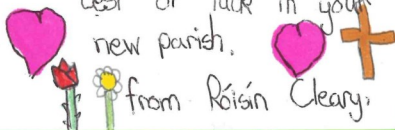 of luck in your
new parish.
from Róisín Cleary.